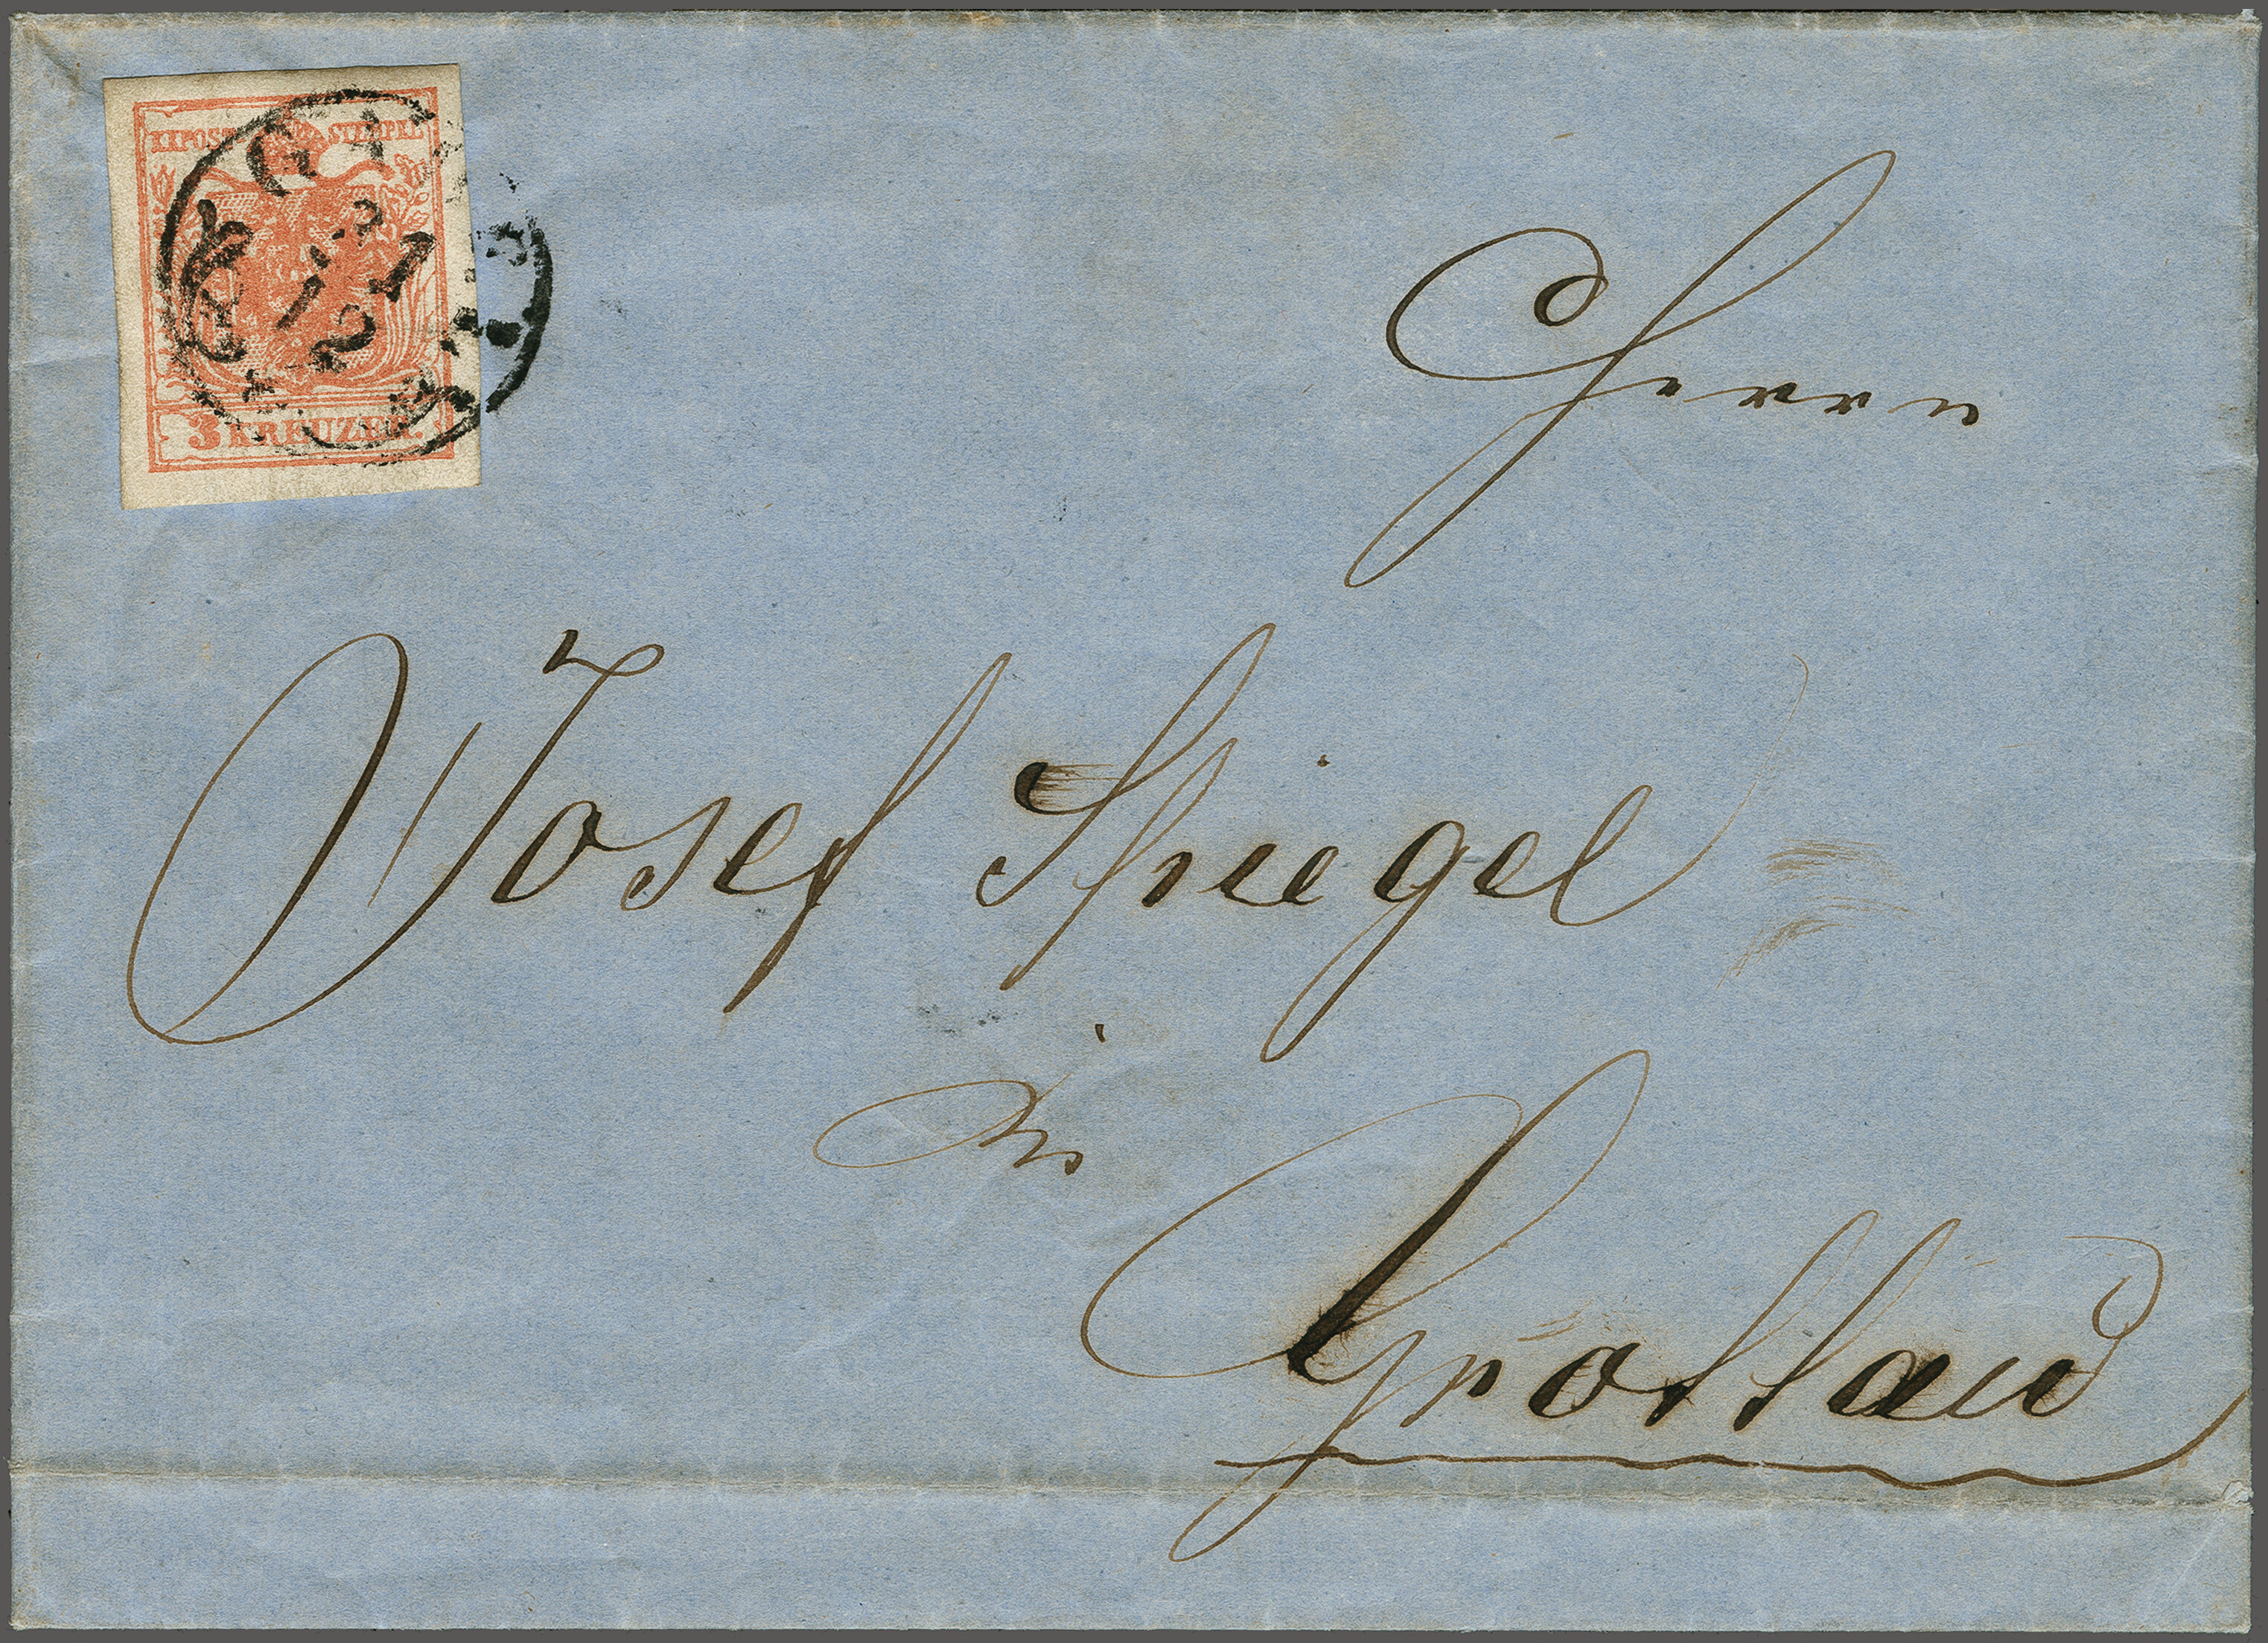 KKPOST STEMPEL
3 KREUZER.
Herrn
Josef Spiegel
in
Grottau